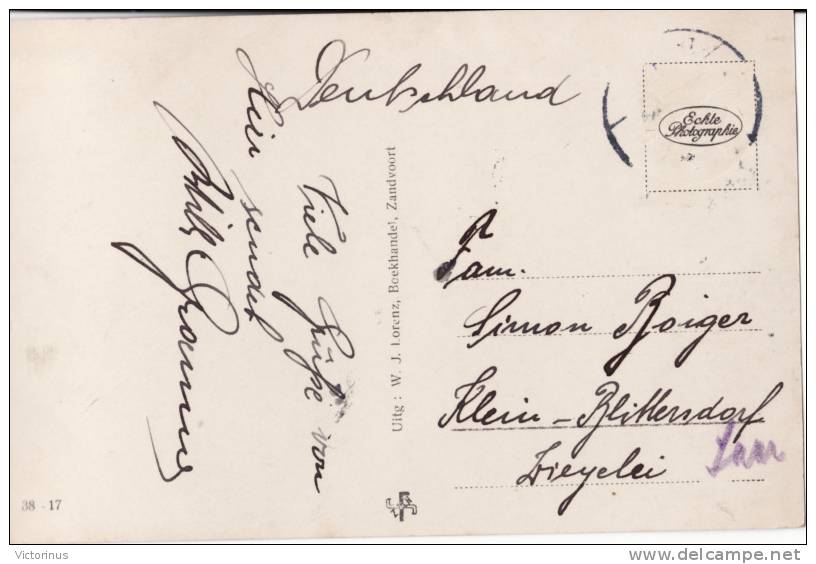 Deutschland
Viele Grüße von
hier sendet
Willi
Uitg: W. J. Lorenz, Boekhandel, Zandvoort
Echte
Photographie
Fam.
Simon Boiger
Klein-Blittersdorf
Ziegelei
Saar
38 - 17
Victorinus
delcampe.net